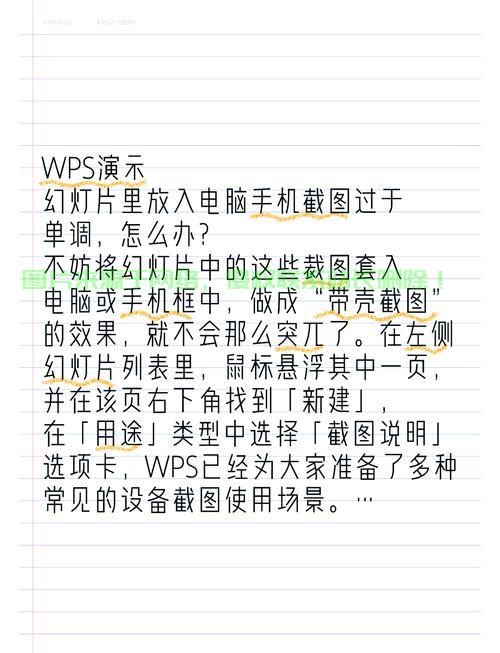 Info Doc Recyclable
WPS演示
幻灯片里放入电脑手机截图过于
单调，怎么办?
不妨将幻灯片中的这些截图套入
图片来源于网络，侵权联系站长删除！
电脑或手机框中，做成“带壳截图”
的效果，就不会那么突兀了。在左侧
幻灯片列表里，鼠标悬浮其中一页，
并在该页右下角找到「新建」，
在「用途」类型中选择「截图说明」
选项卡，WPS已经为大家准备了多种
常见的设备截图使用场景。…